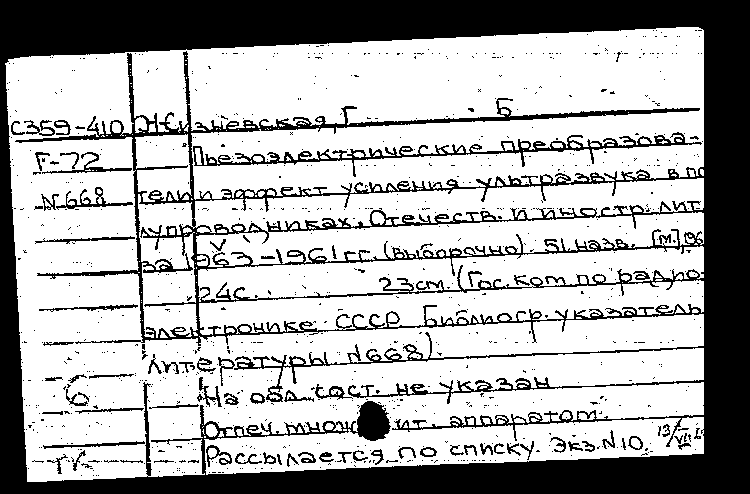 С359-410 Жизневская, Г Б
F-72 Пьезоэлектрические преобразова-
N668 тели и эффект усиления ультразвука в по
лупроводниках. Отечеств. и иностр. лит.
за 1963-1961 гг. (выборочно). 51 назв. [М.], 96
24с. 23см. (Гос. ком. по радио-
электронике СССР Библиогр. указатель
литературы. N668).
6 На обл. сост. не указан
Отпеч. множ ит. аппаратом.
Рассылается по списку. Экз. N10. 13/VII